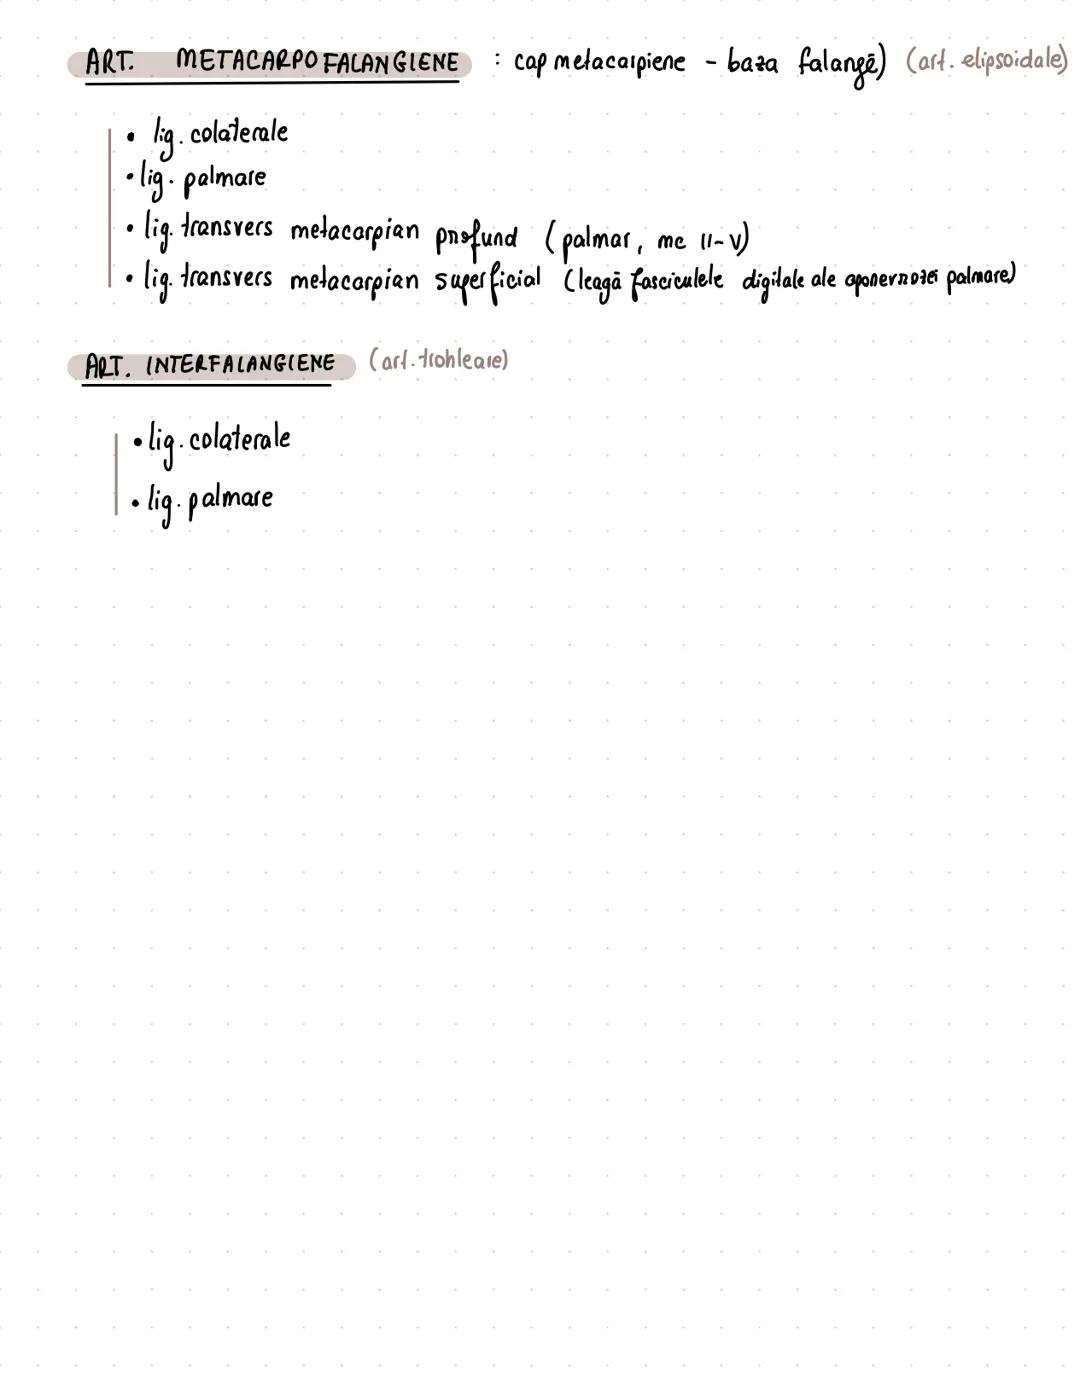 ART. METACARPOFALANGIENE : cap metacarpiene - baza falangē) (art. elipsoidale)
• lig. colaterale
• lig. palmare
• lig. transvers metacarpian profund (palmar, mc II-V)
• lig. transvers metacarpian superficial (leagă fasciculele digitale ale aponevrozei palmare)
ART. INTERFALANGIENE (art. trohleare)
• lig. colaterale
• lig. palmare